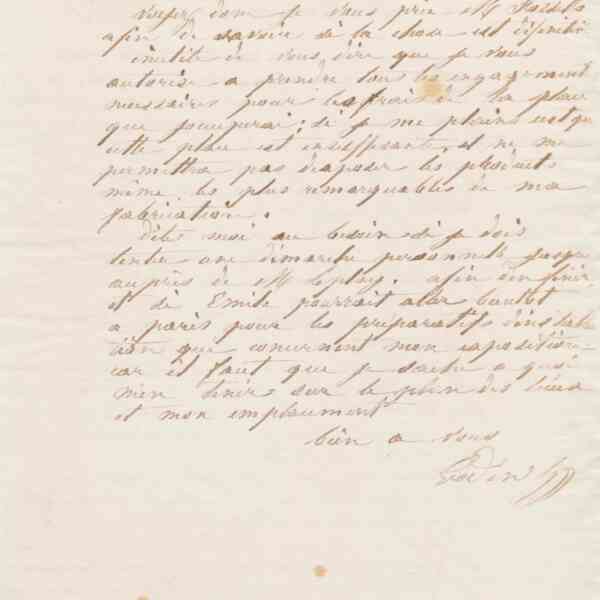 donc je vous prie M
afin de savoir si la chose est définitive
inutile de vous dire que je vous
autorise a prendre tous les engagement
nessaires pour les frais de la place
que j'occuperai; si je me plains c'est que
cette place est insuffisante, et ne me
permettra pas d'exposer les produits
même les plus remarquables de ma
fabrication.
dites moi au besoin si je dois
tenter une démarche personnelle jusqu
auprès de M leplay. afin d'en finir
et si Emile pourrait aler bientot
a paris pour les préparatifs d'instala
tion que concernent mon exposition.
car il faut que je sache a quoi
m'en tenir sur le plan des lieux
et mon emplacement
bien a vous
Godin